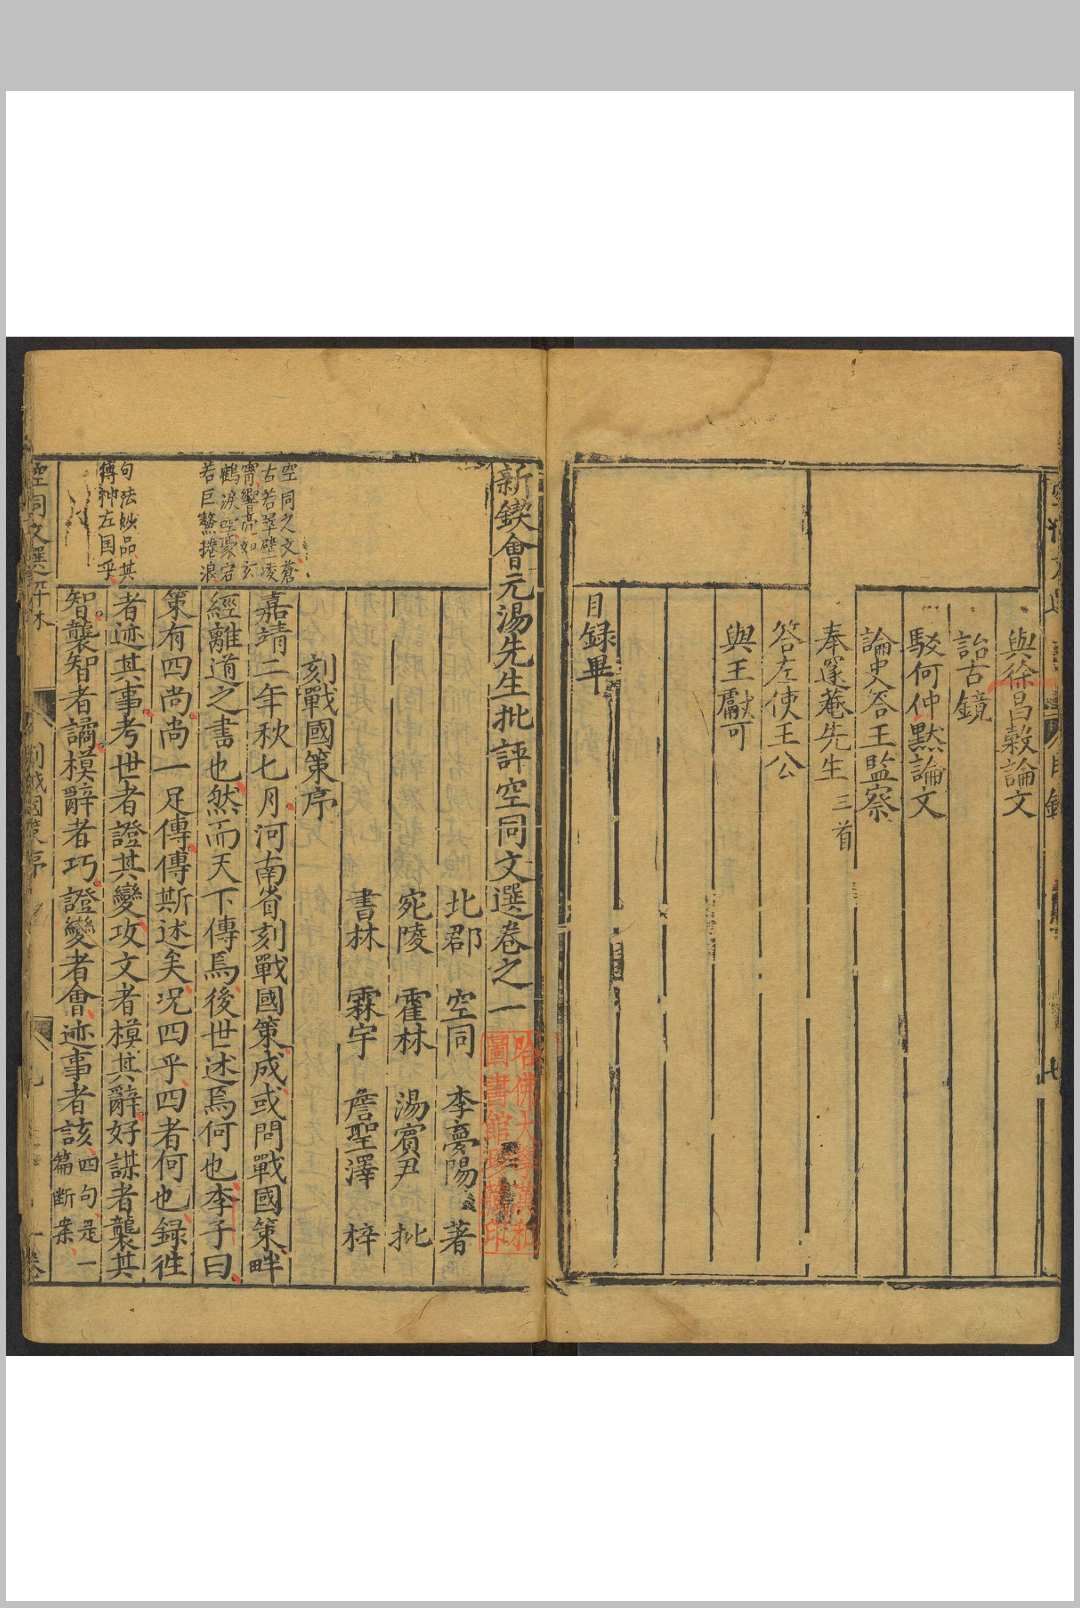 與徐昌穀論文
詒古鏡
駁何仲黙論文
論史答王監察
奉邃菴先生 三首
答左使王公
與王獻可
目録畢
新鍥會元湯先生批評空同文選卷之一
北郡 空同 李夢陽 著
宛陵 霍林 湯賓尹 批
書林 霖宇 詹聖澤 梓
刻戰國策序
空同之文蒼
古若翠壁凌
霄響亮如玄
鶴淚空豪宕
若巨鰲捲浪
嘉靖二年秋七月河南省刻戰國策成或問戰國策畔
經離道之書也然而天下傳焉後世述焉何也李子曰
策有四尚尚一足傳傳斯述矣况四乎四者何也録徃
句法妙品其
傳神左国乎
者迹其事考世者證其變攻文者模其辭好謀者襲其
智襲智者譎模辭者巧證變者會迹事者該 四句是一篇断案
空同文選評林 刻戰國策序 一卷